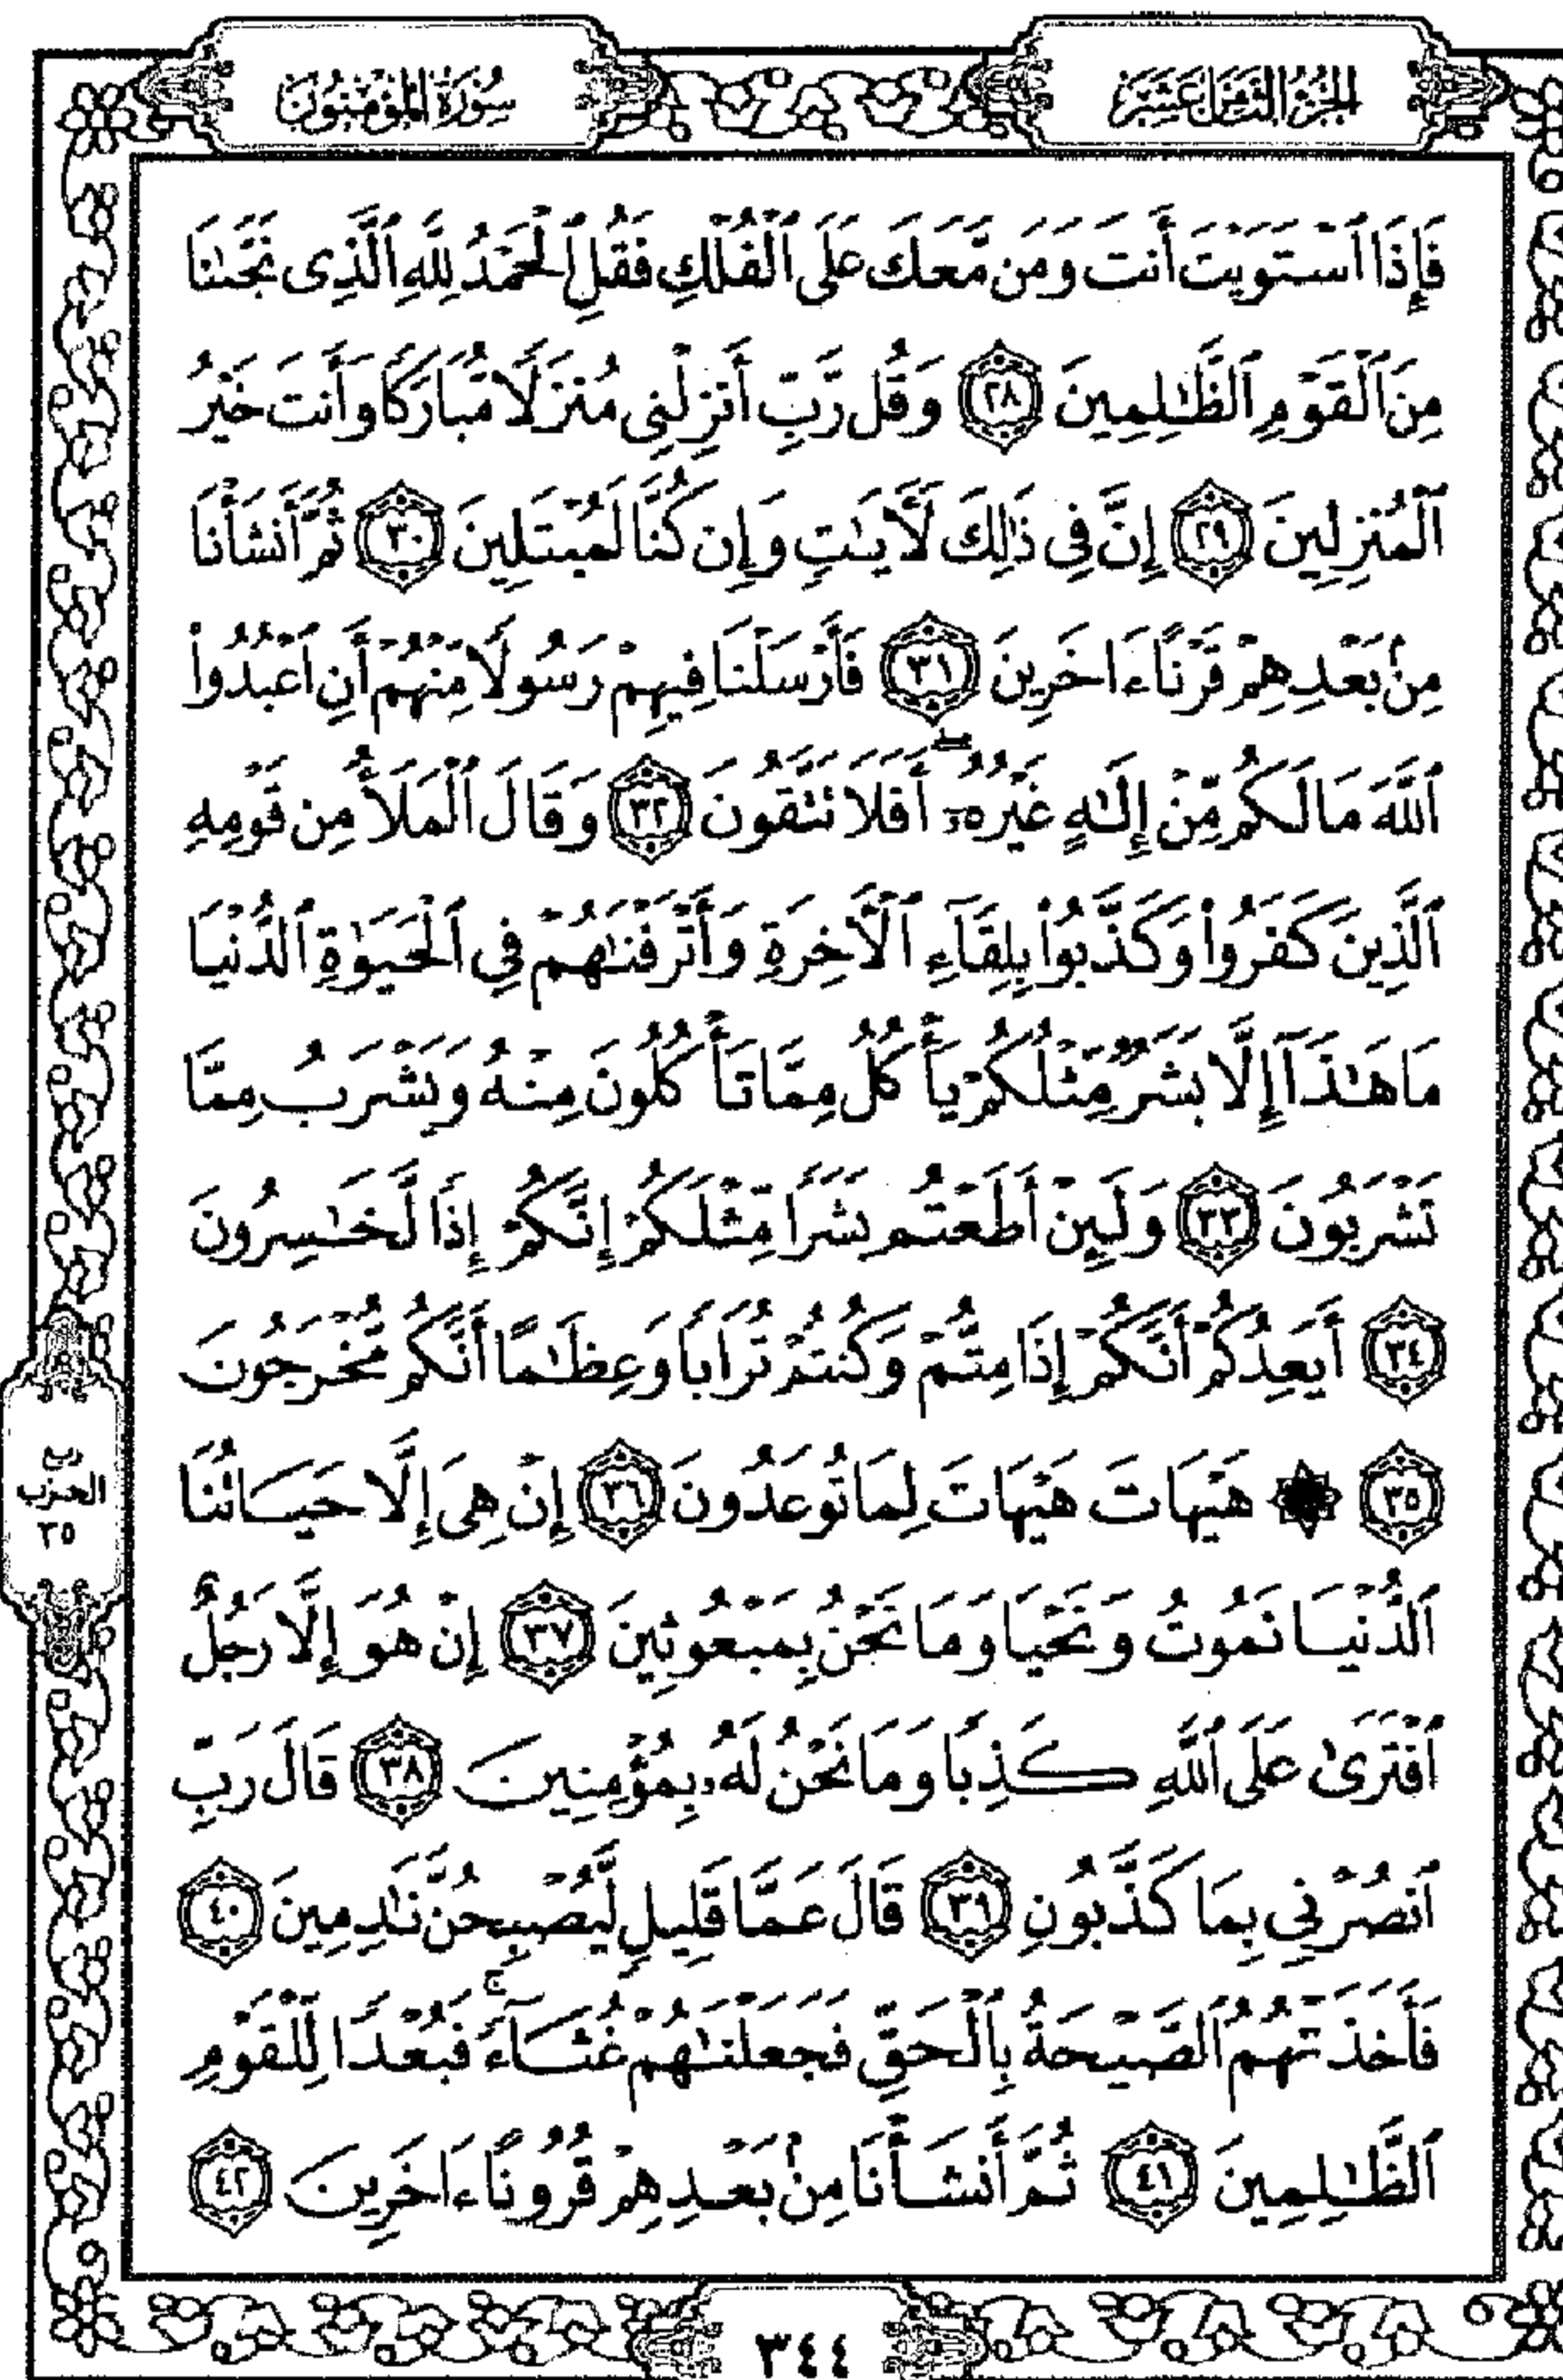 الجزء الثامن عشر
سورة المؤمنون
فَإِذَا ٱسْتَوَيْتَ أَنتَ وَمَن مَّعَكَ عَلَى ٱلْفُلْكِ فَقُلِ ٱلْحَمْدُ لِلَّهِ ٱلَّذِى نَجَّىٰنَا
مِنَ ٱلْقَوْمِ ٱلظَّـٰلِمِينَ ٢٨ وَقُل رَّبِّ أَنزِلْنِى مُنزَلًا مُّبَارَكًا وَأَنتَ خَيْرُ
ٱلْمُنزِلِينَ ٢٩ إِنَّ فِى ذَٰلِكَ لَـَٔايَـٰتٍ وَإِن كُنَّا لَمُبْتَلِينَ ٣٠ ثُمَّ أَنشَأْنَا
مِنۢ بَعْدِهِمْ قَرْنًا ءَاخَرِينَ ٣١ فَأَرْسَلْنَا فِيهِمْ رَسُولًا مِّنْهُمْ أَنِ ٱعْبُدُوا۟
ٱللَّهَ مَا لَكُم مِّنْ إِلَـٰهٍ غَيْرُهُۥٓ ۖ أَفَلَا تَتَّقُونَ ٣٢ وَقَالَ ٱلْمَلَأُ مِن قَوْمِهِ
ٱلَّذِينَ كَفَرُوا۟ وَكَذَّبُوا۟ بِلِقَآءِ ٱلْـَٔاخِرَةِ وَأَتْرَفْنَـٰهُمْ فِى ٱلْحَيَوٰةِ ٱلدُّنْيَا
مَا هَـٰذَآ إِلَّا بَشَرٌ مِّثْلُكُمْ يَأْكُلُ مِمَّا تَأْكُلُونَ مِنْهُ وَيَشْرَبُ مِمَّا
تَشْرَبُونَ ٣٣ وَلَئِنْ أَطَعْتُم بَشَرًا مِّثْلَكُمْ إِنَّكُمْ إِذًا لَّخَـٰسِرُونَ
٣٤ أَيَعِدُكُمْ أَنَّكُمْ إِذَا مِتُّمْ وَكُنتُمْ تُرَابًا وَعِظَـٰمًا أَنَّكُم مُّخْرَجُونَ
٣٥ ۞ هَيْهَاتَ هَيْهَاتَ لِمَا تُوعَدُونَ ٣٦ إِنْ هِىَ إِلَّا حَيَاتُنَا
ربع
الحزب
٣٥
ٱلدُّنْيَا نَمُوتُ وَنَحْيَا وَمَا نَحْنُ بِمَبْعُوثِينَ ٣٧ إِنْ هُوَ إِلَّا رَجُلٌ
ٱفْتَرَىٰ عَلَى ٱللَّهِ كَذِبًا وَمَا نَحْنُ لَهُۥ بِمُؤْمِنِينَ ٣٨ قَالَ رَبِّ
ٱنصُرْنِى بِمَا كَذَّبُونِ ٣٩ قَالَ عَمَّا قَلِيلٍ لَّيُصْبِحُنَّ نَـٰدِمِينَ ٤٠
فَأَخَذَتْهُمُ ٱلصَّيْحَةُ بِٱلْحَقِّ فَجَعَلْنَـٰهُمْ غُثَآءً ۚ فَبُعْدًا لِّلْقَوْمِ
ٱلظَّـٰلِمِينَ ٤١ ثُمَّ أَنشَأْنَا مِنۢ بَعْدِهِمْ قُرُونًا ءَاخَرِينَ ٤٢
٣٤٤